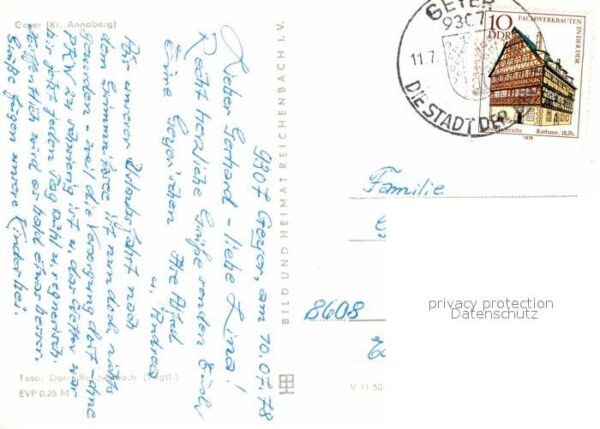 Geyer (Kr. Annaberg)
9307 Geyer, am 10.07.78
Lieber Gerhard - liebe Lina!
Recht herzliche Grüße senden Euch
Eure
Ilse
u. Andrea
Aus unserer Urlaubsfahrt nach
dem ist nun doch nichts
geworden - weil die Versorgung dort ohne
PKW zu schwierig ist u. das Wetter war
bis jetzt jeden Tag kühl u. regnerisch.
Hoffentlich wird es bald etwas besser.
Grüße fügen unsere Kinder bei.
Foto: Darr, Reichenbach (Vogtl.)
EVP 0,25 M
BILD UND HEIMAT REICHENBACH I. V.
V 11 50
GEYER
9307
11.7.
DIE STADT DER
10
DDR
FACHWERKBAUTEN IN DER DDR
Rathaus, 18.Jh.
1978
Familie
8608
privacy protection
Datenschutz